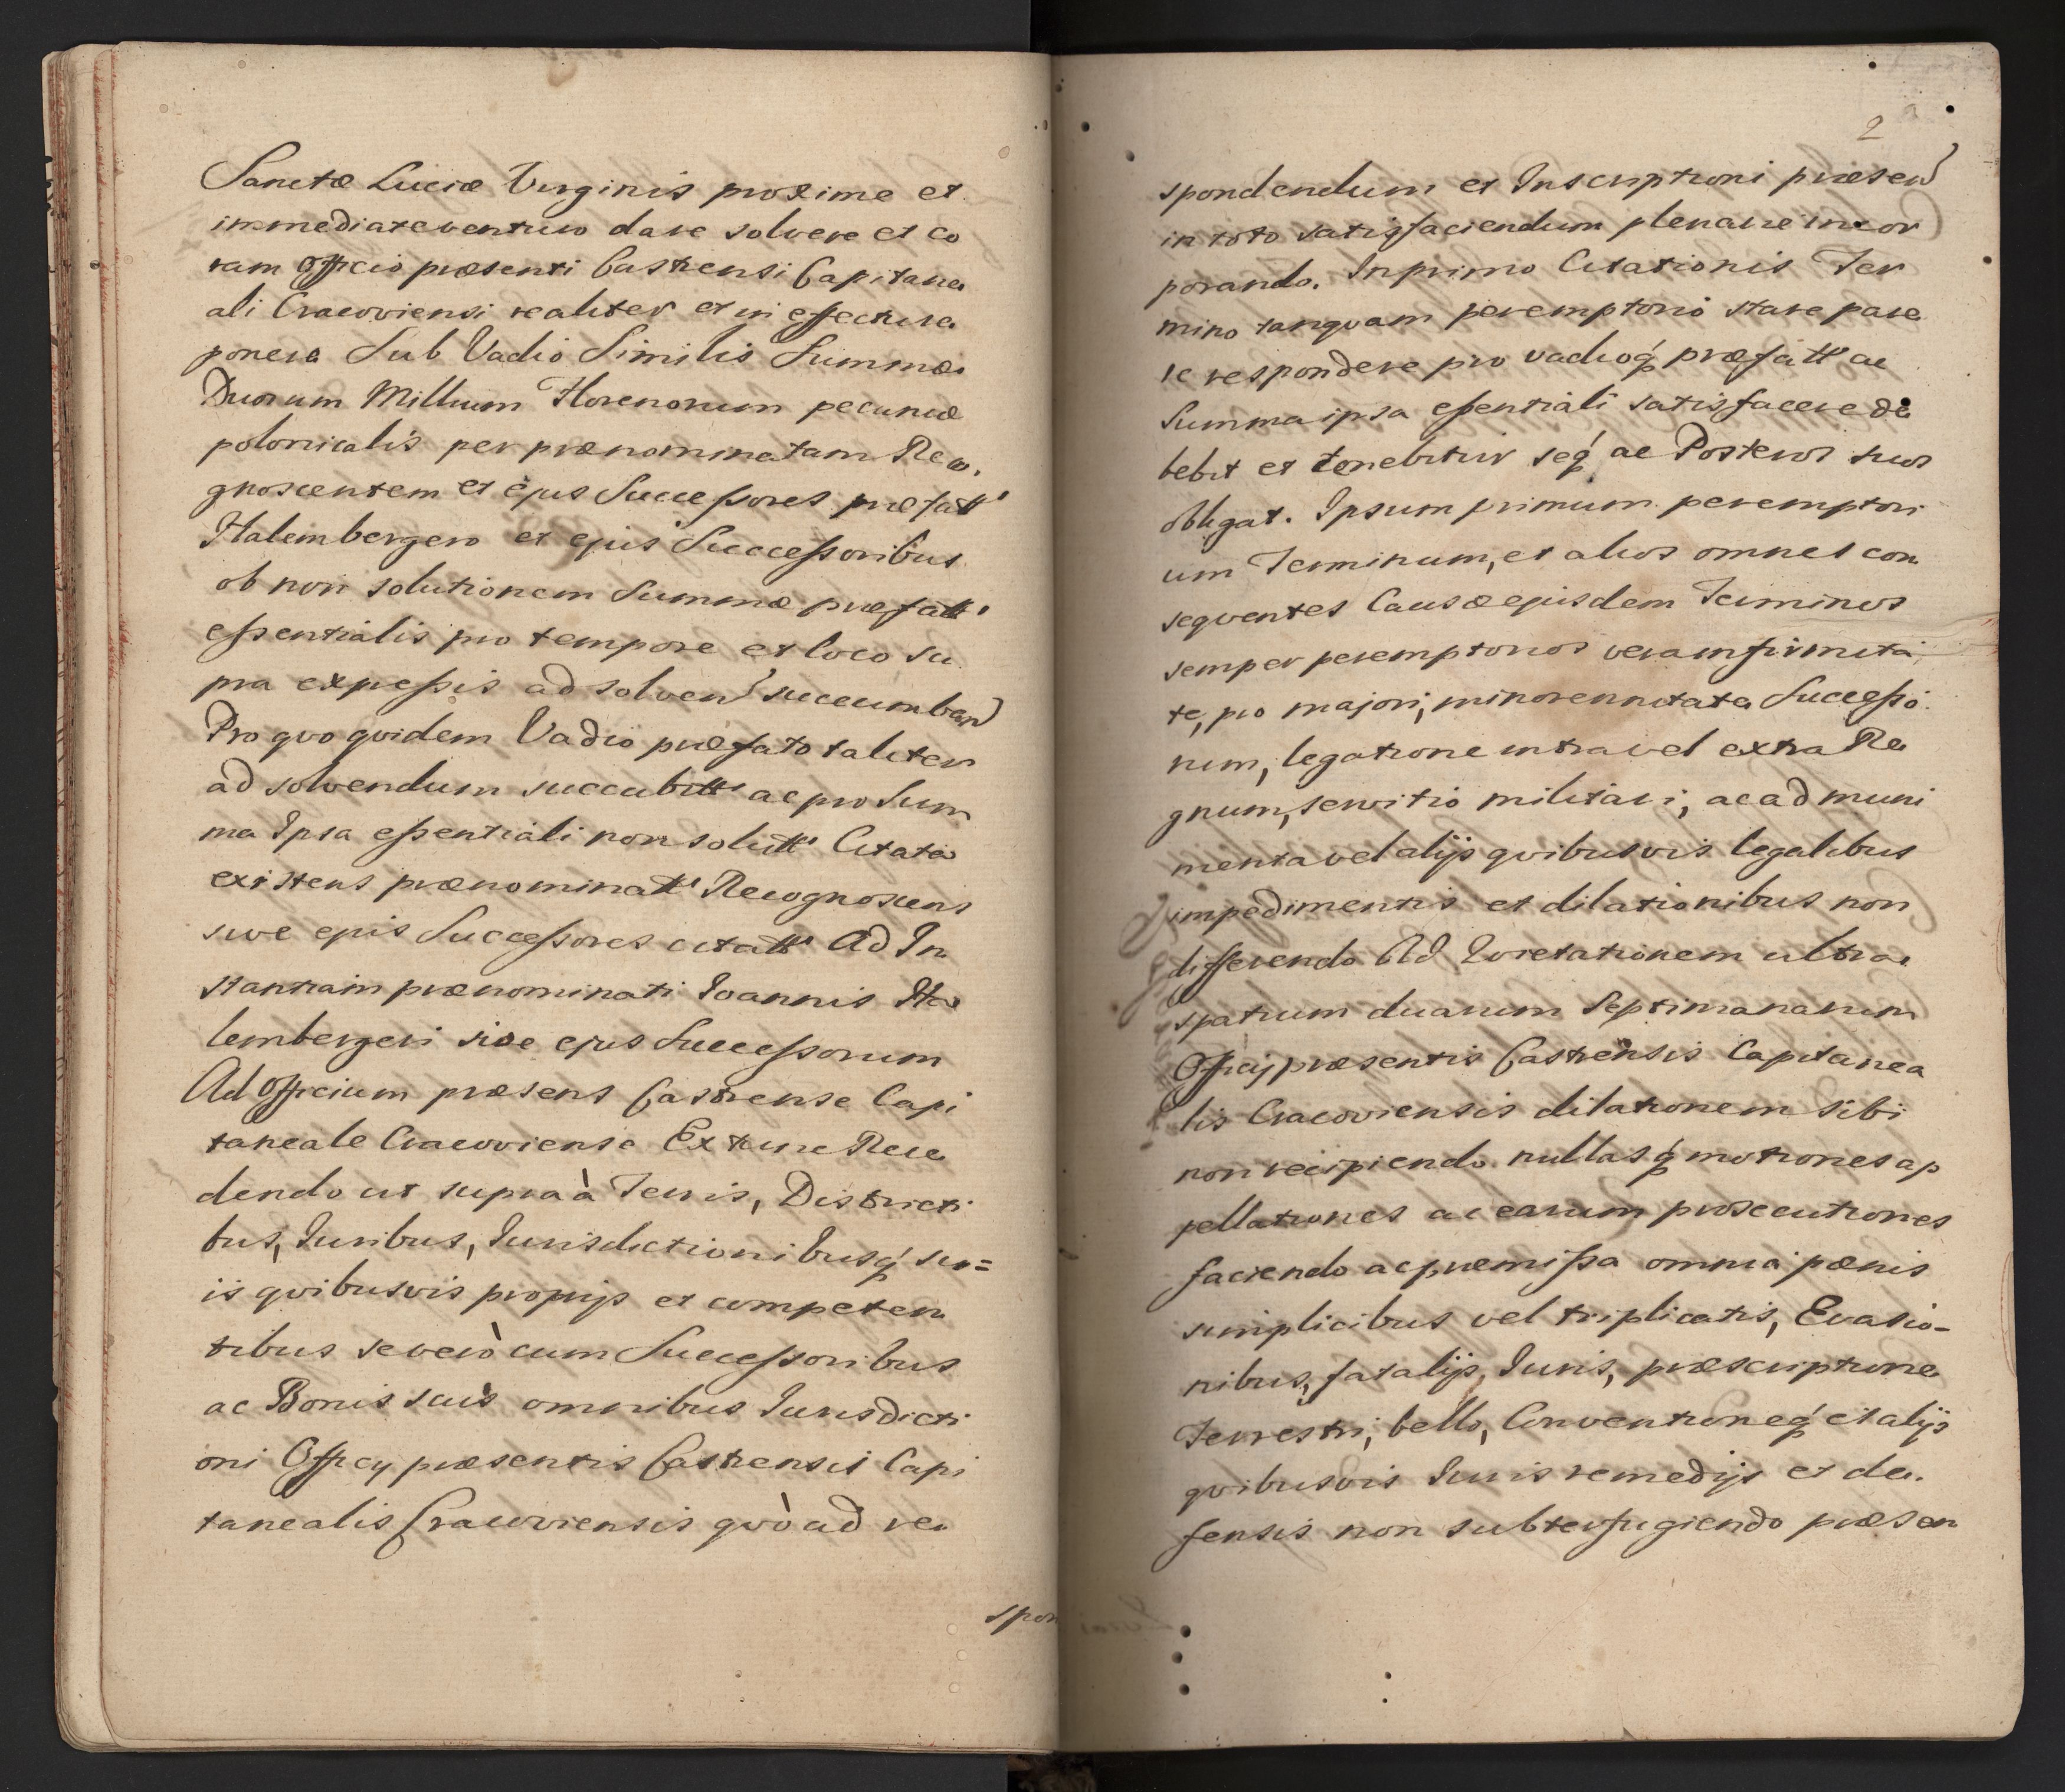 Sanctæ Luciæ Virginis proxime et
immediate venturo dare solvere et co
ram Officio præsenti Castrensi Capitane
ali Cracoviensi realiter et in effectu re
ponere Sub Vadio Similis Summæ
Duorum Millium Florenorum pecuniæ
polonicalis per prænominatam Reco
gnoscentem et ejus Successores præfatt'
Halembergero et ejus Successoribus
ob non solutionem Summæ præfatt'
essentialis pro tempore et loco su
pra expressis ad solven succumben
Pro qvo qvidem Vadio præfato taliter
ad solvendum succubitt' ac pro Sum
ma Ipsa essentiali non solutt' Citata
existens prænominatt' Recognoscens
sive ejus Successores citatt' Ad In
stantiam prænominati Ioannis Ha
lembergeri sive ejus Successorum
Ad Officium præsens Castrense Capi
taneale Cracoviense Ex tunc Rece
dendo ut supra à Terris, Districti
bus, Iuribus, Iurisdictionibusq́ su=
is qvibusvis proprijs et competen
tibus se verò cum Successoribus
ac Bonis suis omnibus Iurisdicti
oni Officij præsentis Castrensis Capi
tanealis Cracoviensis qvò ad re
spon
2
spondendum et Inscriptioni præsen
in toto satisfaciendum plenarie incor
porando. In primo Citationis Ter
mino tanqvam peremptorio stare pare
re respondere pro vadioq́ præfatt' ac
Summa ipsa essentiali satisfacere de
bebit et tenebitur seq́ ac Posteros suos
obligat. Ipsum primum peremptori
um Terminum, et alios omnes con
seqventes Causæ ejusdem Terminos
semper peremptorios vera infirmita
te, pro majori, minorennitate Successo
rum, legatione intra vel extra Re
gnum, servitio militari, ac ad muni
menta vel alijs qvibusvis legalibus
impedimentis et dilationibus non
differendo Ad Qvietationem ultra
spatium duarum Septimanarum
Officij præsentis Castrensis Capitanea
lis Cracoviensis dilationem sibi
non recipiendo nullasq́ motiones ap
pellationes ac earum prosecutiones
faciendo ac præmissa omnia pænis
simplicibus vel triplicatis, Evasio=
nibus, fatalijs, Iuris, præscriptione
Terrestri, bello, Conventioneq́ et alijs
qvibusvis Iuris remedijs et de
fensis non subterfugiendo præsen